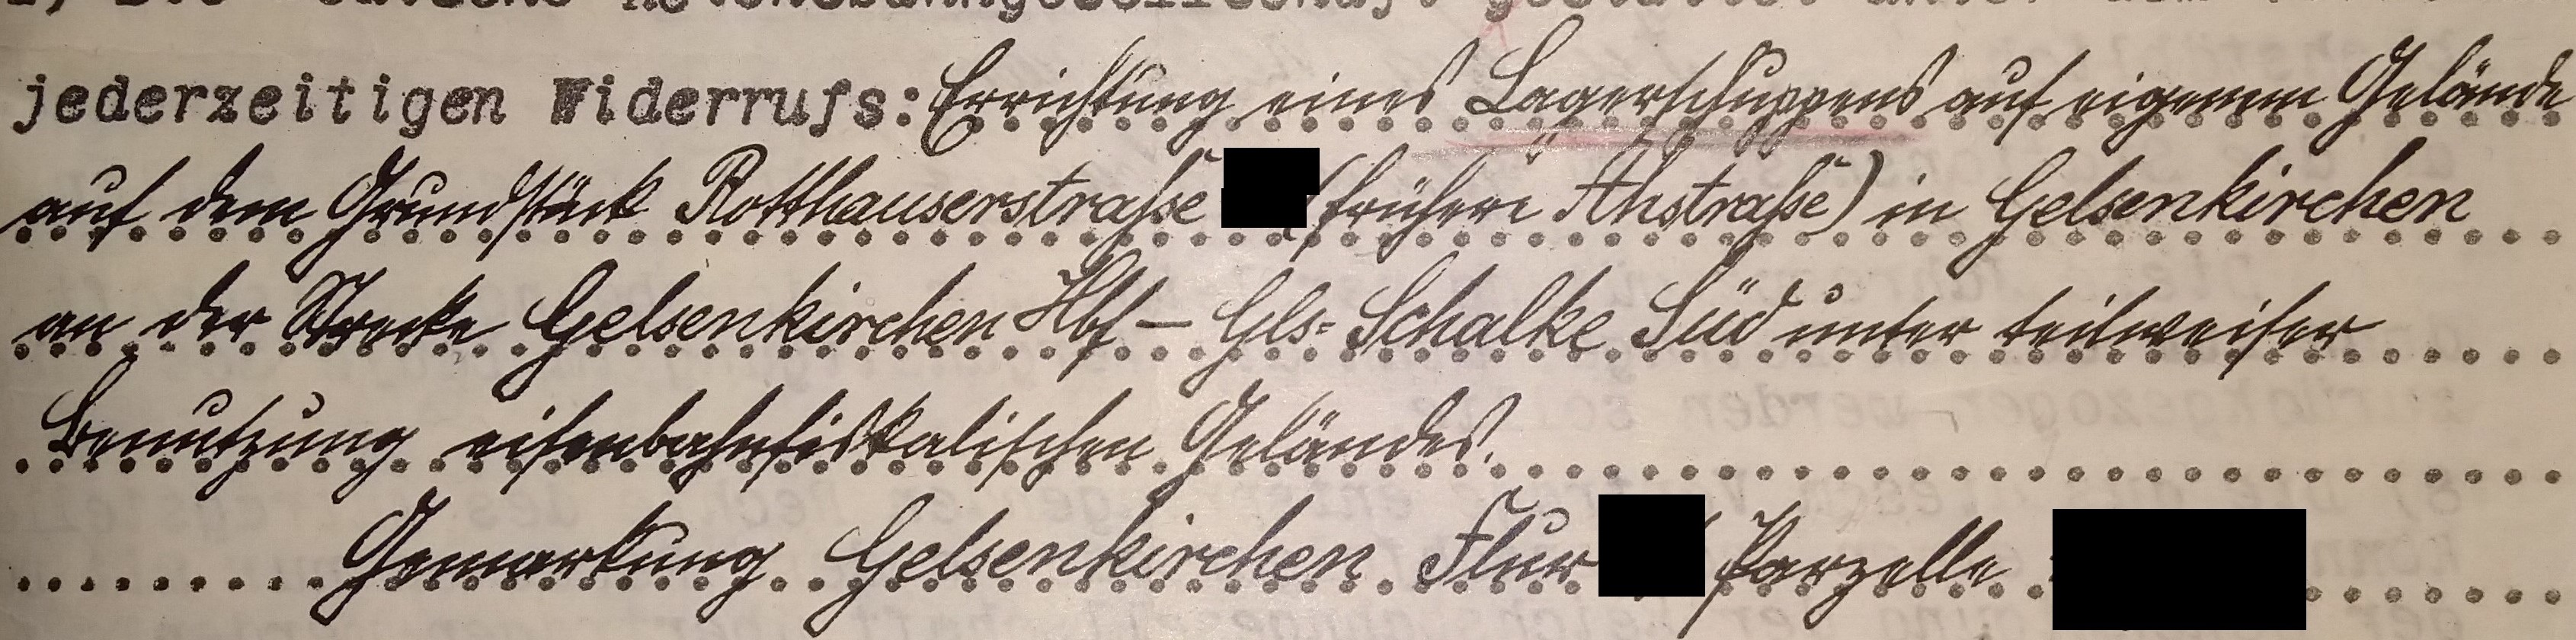 jederzeitigen Widerrufs: Errichtung eines Lagerschuppens auf eigenem Gelände
auf dem Grundstück Rotthauserstraße (frühere Ahstraße) in Gelsenkirchen
an der Strecke Gelsenkirchen Hbf – Gls-Schalke Süd unter teilweiser
Benutzung eisenbahnfiskalischen Geländes.
Gemarkung Gelsenkirchen Flur Parzelle